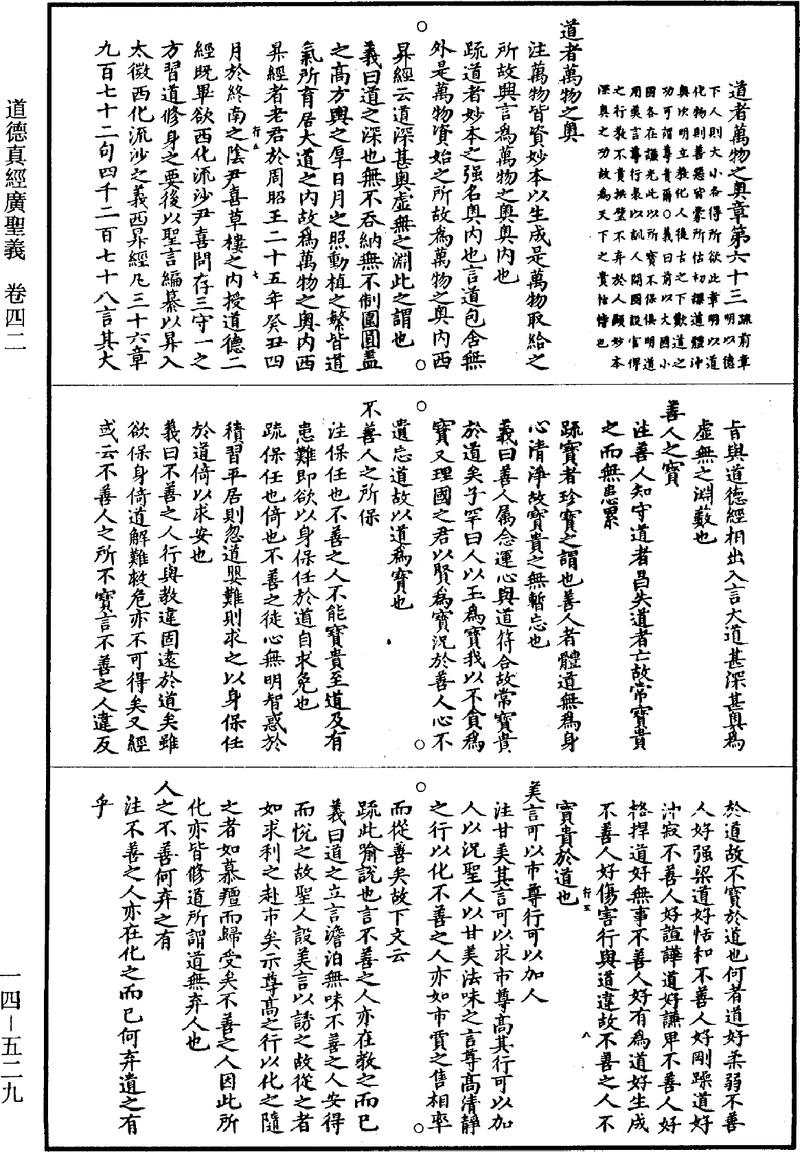 道德真經廣聖義　卷四二
一四－五二九
道者萬物之奧章第六十三疏前章明以德
下人則大小各得所欲此章明以道
化物則善惡皆蒙所估初標道體沖
奧次明立教化人後古之下歎道之
功可謂尊貴爾○義曰前以大國小
國各在謙光此以所寶不保俱明道
用美言尊行表以訓人開國設官俾
之行教不責拱璧不弃於人顯妙本
深奧之功故為天下之貴怙恃也
道者萬物之奧
注萬物皆資妙本以生成是萬物取給之
所故興言為萬物之奧奧內也
疏道者妙本之强名奧內也言道包含無
外是萬物資始之所故為萬物之奧內西
昇經云道深甚奧虛無之淵此之謂也
義曰道之深也無不吞納無不制圍圓蓋
之高方輿之厚日月之照動植之繁皆道
氣所育居大道之內故為萬物之奧內西
昇經者老君於周昭王二十五年癸丑四
月於終南之陰尹喜草樓之內授道德二
經既畢欲西化流沙尹喜問存三守一之
方習道修身之要後以聖言編纂以昇入
太微西化流沙之義西昇經凡三十六章
九百七十二句四千二百七十八言其大
旨與道德經相出入言大道甚深甚奧為
虛無之淵藪也
善人之寶
注善人知守道者昌失道者亡故常寶貴
之而無患累
疏寶者珍寶之謂也善人者體道無為身
心清淨故寶貴之無暫忘也
義曰善人屬念運心與道符合故常寶貴
於道矣子罕曰人以玉為寶我以不貪為
寶又理國之君以賢為寶況於善人心不
遺忘道故以道為寶也
不善人之所保
注保任也不善之人不能寶貴至道及有
患難即欲以身保任於道自求免也
疏保任也倚也不善之徒心無明智惑於
積習平居則忽道嬰難則求之以身保任
於道倚以求安也
義曰不善之人行與教違固遠於道矣雖
欲保身倚道解難救危亦不可得矣又經
或云不善人之所不寶言不善之人違反
於道故不寶於道也何者道好柔弱不善
人好强梁道好恬和不善人好剛躁道好
沖寂不善人好諠譁道好謙卑不善人好
格捍道好無事不善人好有為道好生成
不善人好傷害行與道違故不善之人不
寶貴於道也
美言可以市尊行可以加人
注甘美其言可以求市尊高其行可以加
人以況聖人以甘美法味之言尊高清靜
之行以化不善之人亦如市賈之售相率
而從善矣故下文云
疏此喻說也言不善之人亦在教之而已
義曰道之立言澹泊無味不善之人安得
而悅之故聖人設美言以誘之故從之者
如求利之赴市矣示尊高之行以化之隨
之者如慕羶而歸受矣不善之人因此所
化亦皆修道所謂道無弃人也
人之不善何弃之有
注不善之人亦在化之而已何弃遺之有
乎